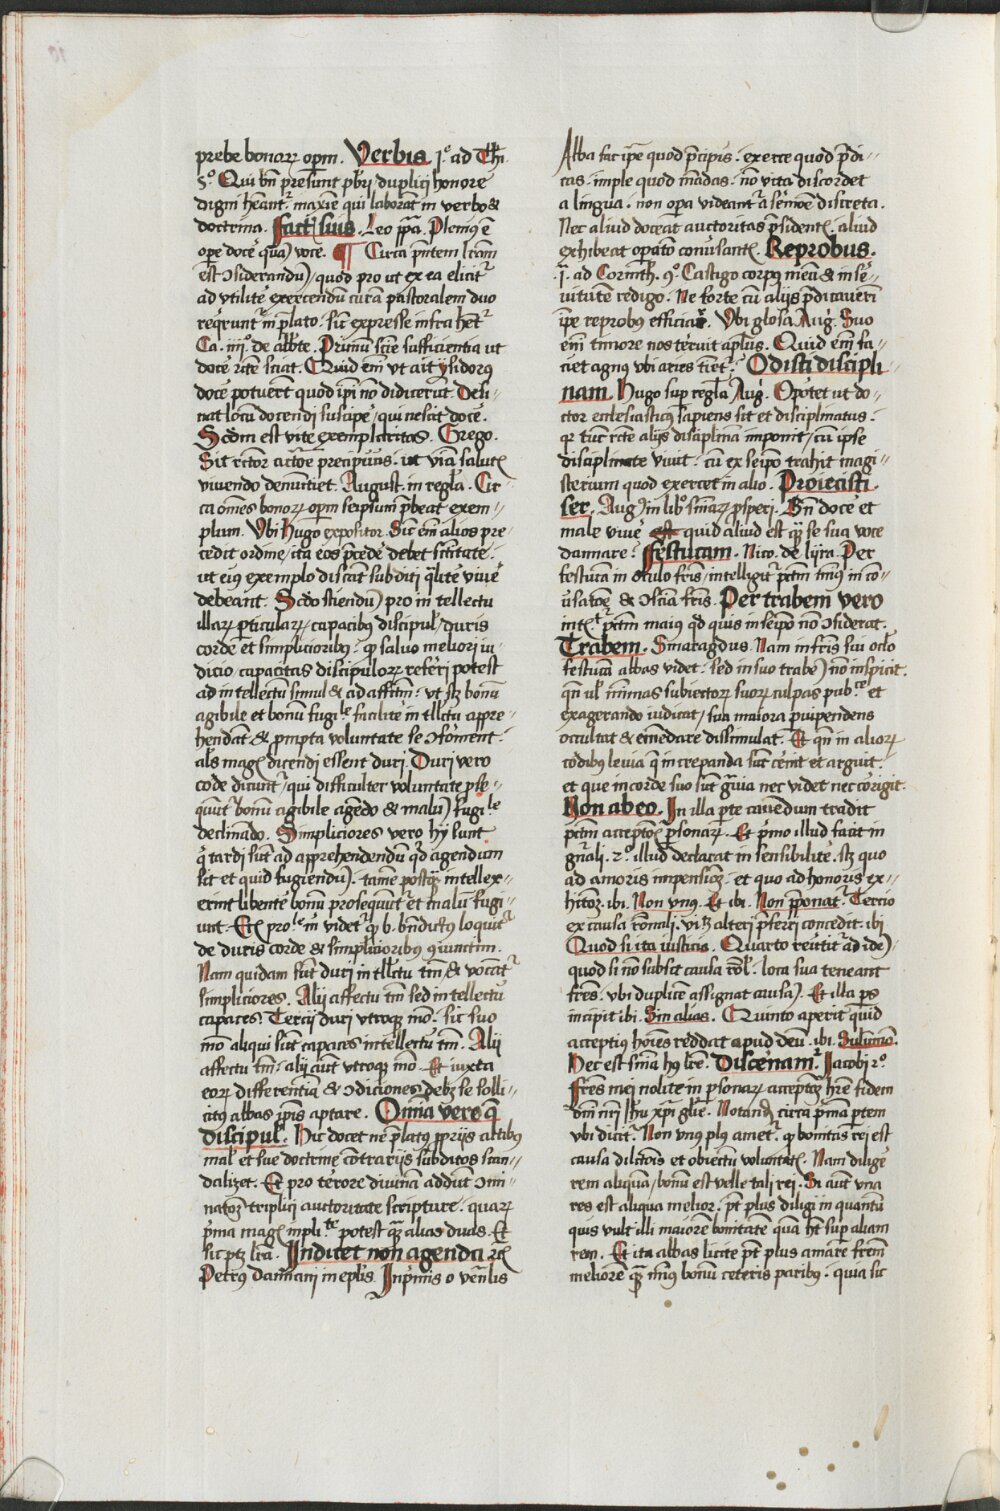 prebe bonoꝝ oꝑm. Verbis .j.º ad Thi.
5º Qui bn̄ presunt pb̄ri duplici honore
digni hēant᷑ maxīe qui laborāt in verbo &
doctrina. Factꝭ suis. Leo pp̄a. Pleniꝰ ē
oꝑe docē quā voce. ¶ Circa pn̄tem lr̄am
est ꝯsiderandū / quod pro ut ex ea elicit᷑
ad vtilitē exercendum curā pastoralem duo
reqͥrunt᷑ in p̄lato. sic̄ expresse infra hēt᷑
Ca. iiijº de abbte. Primū scīe sufficientia ut
docē rite sciat. Quid em̄ vt ait ysidorꝰ
docē poterūt quod ip̄i nō didicerūt. Desi-
nat locū docendi suscipē / qui nescit docē.
Scd̄m est vite exemplaritas. Grego.
Sit rc̄tor actōe precipuus. ut viā salutꝭ
vivendo denūtiet. August. in regl̄a. Cir
ca ōmes bonoꝝ oꝑm seipsum p̄beat exem-
plum. Vbi Hugo expositor. Sic̄ em̄ alios pre-
cedit ordine / ita eos p̄cedē debet sc̄titate.
ut eiꝰ exemplo discāt subditi qͣlitē viuē
debeant. Scd̄o sciendū pro in tellectu
illaꝝ ꝑticulaꝝ / capacibꝰ discipul̄ / duris
corde et simplicioribꝰ. ꝙ saluo meliorj iu-
dicio capacitas discipuloꝝ referri potest
ad intellectū simul & ad affc̄tm̄. vt sꝫ bonū
agibile et bonū fugiˡᵉ facilitē in tllc̄tu appre-
hendāt & prompta voluntate se ꝯforment.
al̄s magꝭ dicendi essent duri. Duri vero
corde dicunt᷑ / qui difficulter voluntate ꝓse-
quūt᷑ bonū agibile agēdo & malū fugiˡᵉ
declinādo. Simpliciores vero hij sunt
qͥ tardi sūt ad apprehendendū qd̄ agendum
sit et quid fugiendū. tamē postqꝫ intellex-
erint libentē bonū prosequūt᷑ et malū fugi-
unt. Etꝭ proˡᵉ in videt᷑ ꝙ b. bn̄dictꝰ loquit᷑
de duris corde & simplicioribus ꝯiunctim.
Nam quidam sūt duri in tllc̄tu tm̄ & vocāt᷑
simpliciores. Alij affectu tm̄ sed in tellectu
capaces. Tercij duri vtroqꝫ mō. sic̄ suo
mō aliqui sūt capaces intellectu tm̄. Alij
affectu tm̄. alij aūt vtroqꝫ mō. Et iuxta
eoꝝ differentiā & ꝯdiciones debꝫ se solli-
citꝰ abbas ip̄is aptare. Om̄ia vero q̄
discipul̄. Hic docet ne p̄latꝰ ꝓprijs actibꝰ
mal̄ et sue doctrine cōtrarijs subditos scan-
dalizet. Et pro terrore diuinā addūt ꝯmi-
natōꝫ triplici auctoritate scripture. quaꝝ
pͥma magꝭ impliᵗᵉ potest qͣꝫ alias duas. Et
sic ptꝫ lr̄a. Indicet non agenda ⁊cꝭ
Petrus damiani in epl̄is. Inpͥmis o ven̄lis
Alba fac ip̄e quod p̄cipis. exerce quod p̄di-
cas. imple quod mādas. nō vita discordet
a lingua. non oꝑa videant᷑ a sermōe discreta.
Nec aliud doceat auctoritas p̄sidentꝭ. aliud
exhibeat oꝑatō conūsantꝭ. Reprobus.
.j. ad Corinth. 9º. Castigo corpꝰ meū & in ser-
uitutē redigo. Ne forte cū alijs p̄dicauerī
ip̄e reprobꝰ efficiar. Vbi glosa Aug. Suo
em̄ timore nos terruit apl̄us. Quid em̄ fa-
ciet agnus vbi aries timet᷑. Odisti discipli-
nam. Hugo suꝑ regl̄a Aug. Oportet ut do-
ctor ecclesiasticꝰ sapiens sit et disciplinatus.
qr̄ tūc rc̄te alijs disciplinā imponit / cū ipse
disciplinate viuit. cū ex seip̄o trahit magi-
sterium quod exercet in alio. Proiecisti
ser. Aug in libº sn̄iaꝝ prosperi. Bn̄ docē et
male viuē quid aliud est qͣꝫ se sua voce
damnare. Festucam. Nico. de lyra. Per
festucā in oculo fr̄is / intelligit᷑ pctm̄ minꝰ in co-
ūsatōe & ꝯsciā fr̄is. Per trabem vero
intꝭ pctm̄ maiꝰ qd̄ quis in seipō nō ꝯsiderat.
Trabem. Smaragdus. Nam in fr̄is sui oclo
festucā abbas videt. sed in suo trabē nō inspicit.
qn̄ ul̄ mīmas subiectoꝝ suoꝝ culpas pub.ᶜᵉ et
exagerando iudicat / sua maiora paruipendens
occultat & emēdare dissimulat. Et qn̄ in alioꝝ
cōdibꝰ leuia q̄ increpanda sūt cernit et arguit.
et que in corde suo sūt gͣuia nec videt nec corigit.
Non ab eo. In illa ꝑte cauendum tradit
pctm̄ acceptōꝭ ꝑsonaꝝ. Et pͥmo illud facit in
gn̄ali. 2º. illud declarat in sensibilitē. sꝫ quo
ad amoris impensioꝫ. et quo ad honoris ex-
hitōꝫ. ibi. Non vnꝰ. Et ibi. Non p̄ponat᷑. Tercio
ex causa rōnali. vꝫ alteri p̄ferri concedit. ibi
Quod si ita iusticia. Quarto reūtit᷑ ad idē
quod si nō subsit causa rōl̄. loca sua teneant
fr̄es. vbi duplicē assignat causā. Et illa ꝑs
incipit ibi. Sin alias. Quinto aperit quid
acceptiꝰ hoīes reddat apud deū. ibi. Solūmō.
Hec est sn̄ia hꝰ lr̄e. Discernam᷑. Iacobi 2º.
Fr̄es mei nolite in ꝑsonaꝝ acceptōꝫ hr̄e fidem
dn̄i nr̄i Ihu xp̄i gl̄ie. Notand circa pͥmā ꝑtem
vbi dicit᷑. Non vnꝰ plꝰ amet᷑. ꝙ bonitas rei est
causa dilc̄tōis et obiectū voluntatꝭ. Nam dilige-
rem aliquā / bonū est velle tali rei. Si aūt vna
res est aliqua melior. pt̄ plus diligi in quantū
quis vult illi maiorē bonitatē quā ht̄ suꝑ aliam
rem. Et ita abbas licite pt̄ plus amare fr̄em
meliorē qͣꝫ minꝰ bonū ceteris paribꝰ. quia sic